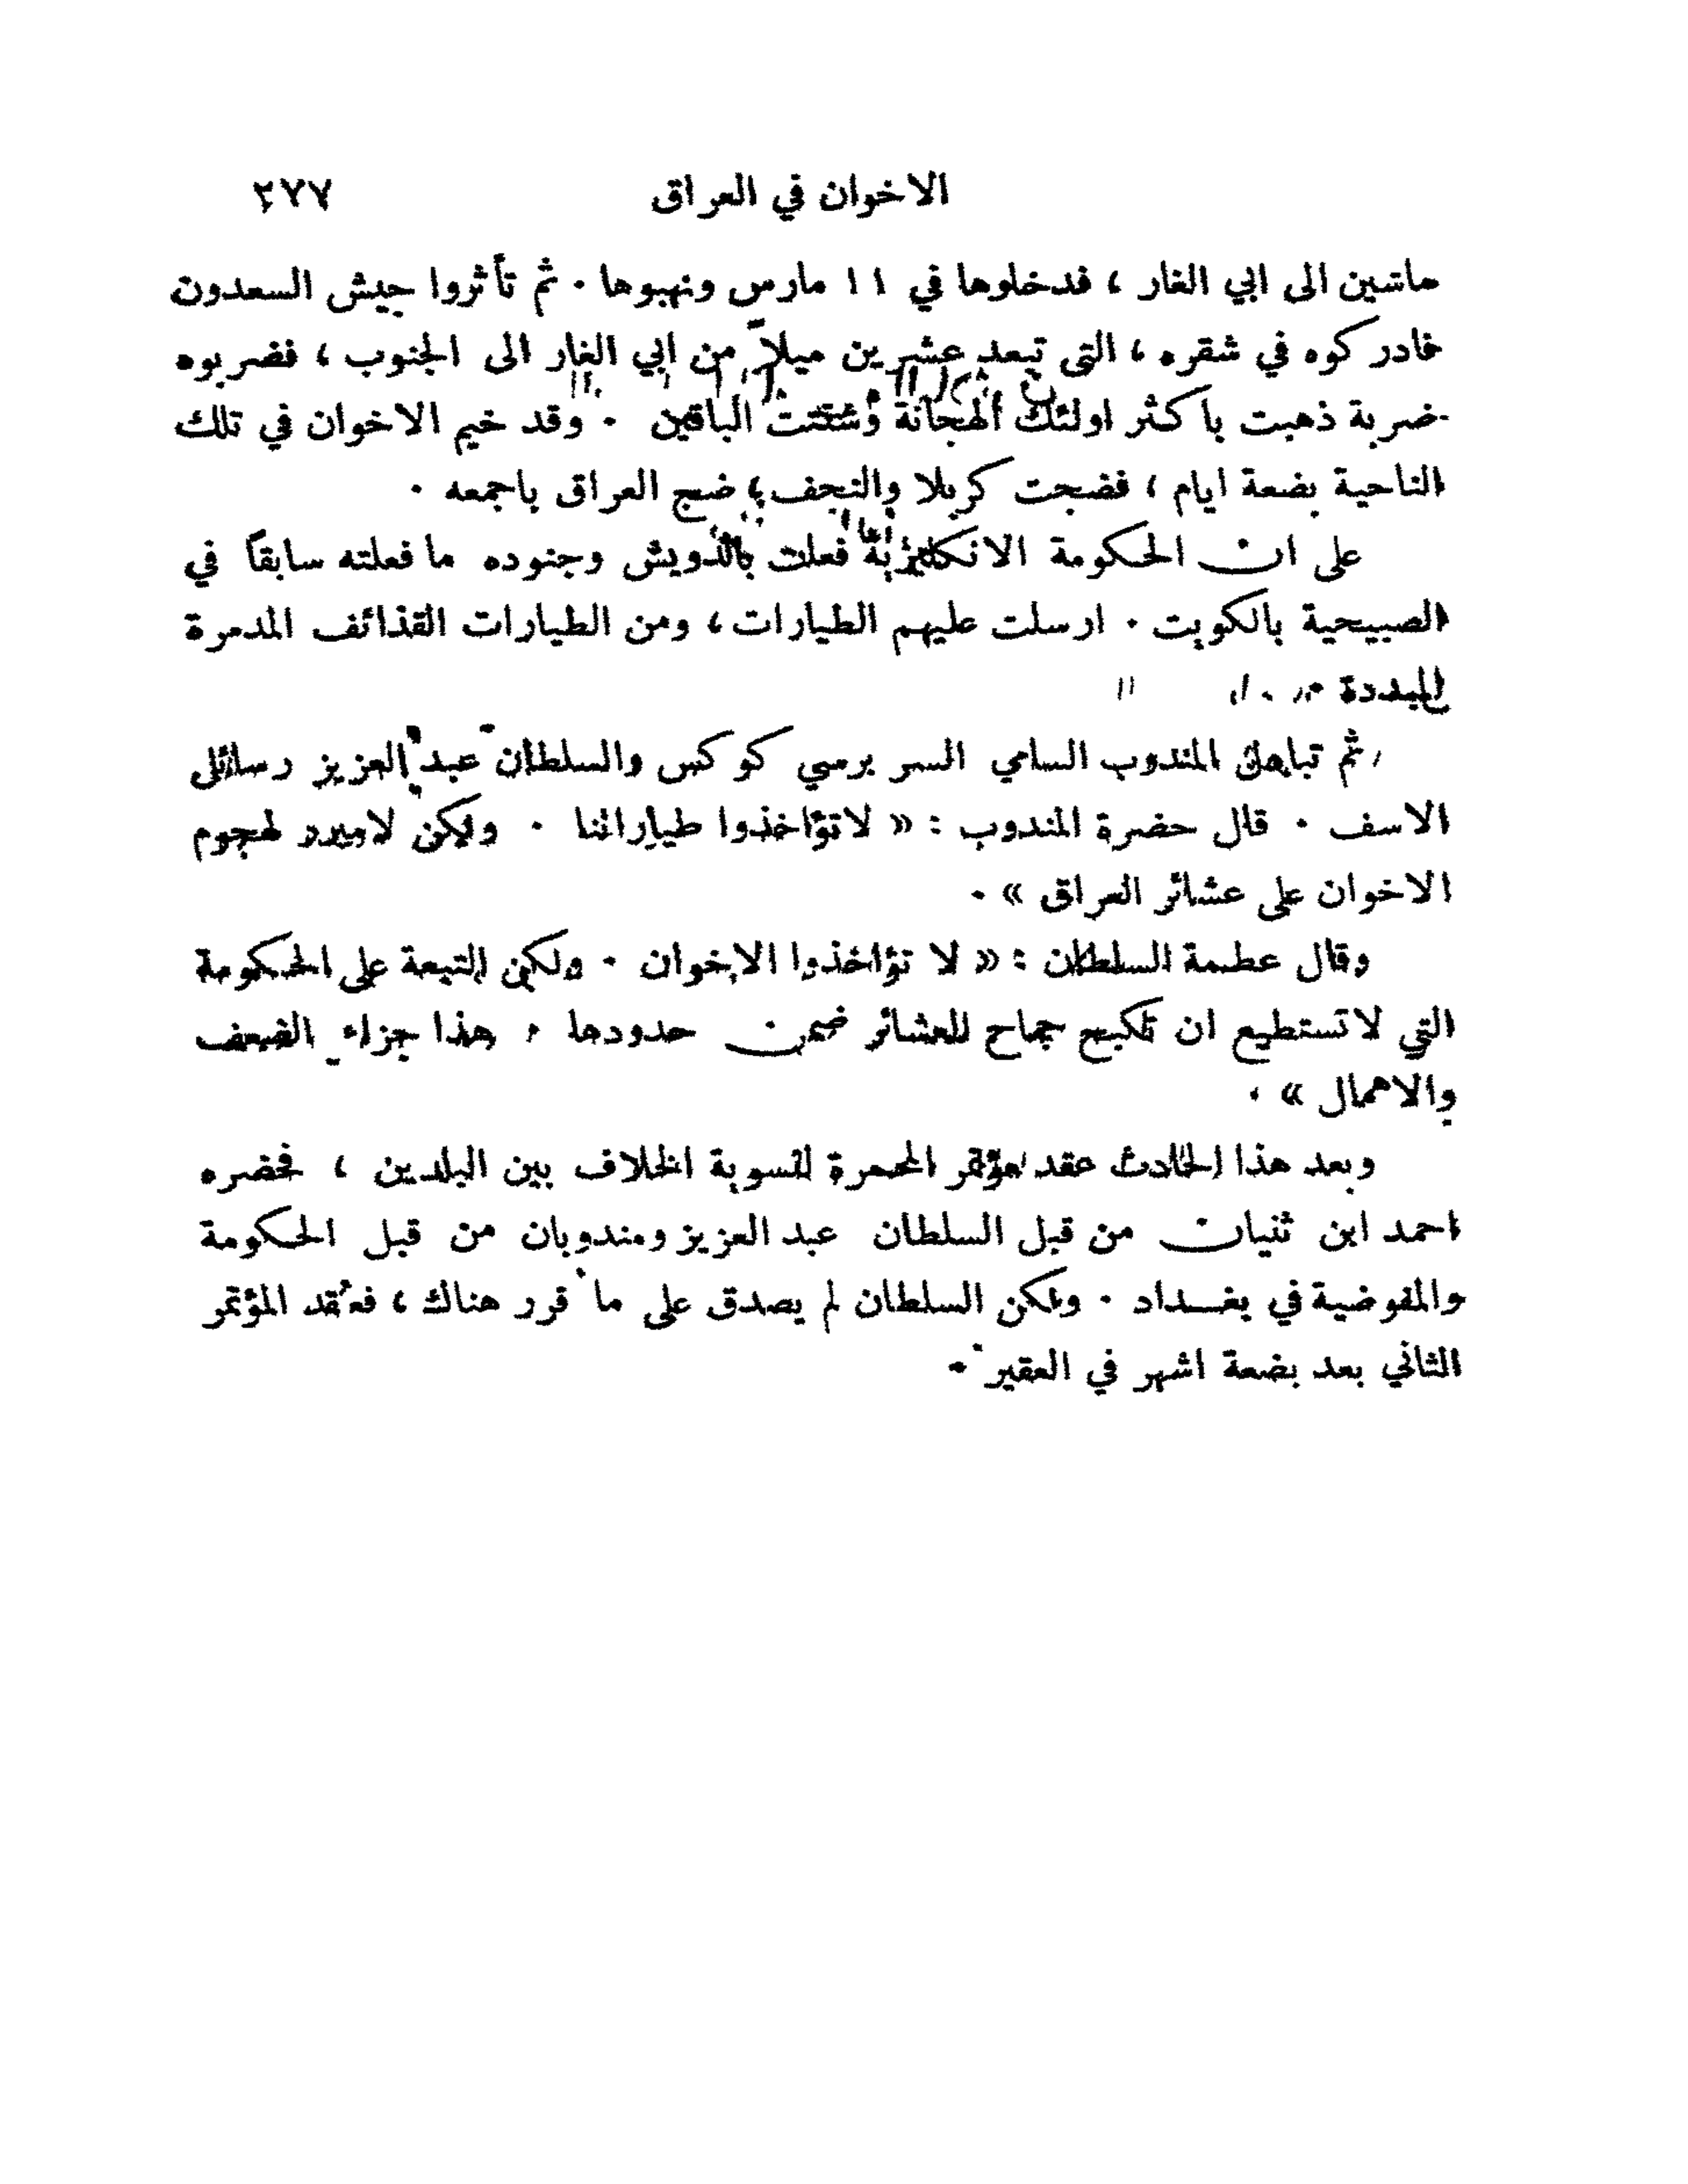 الاخوان في العراق ٢٧٧
ماشين الى ابي الغار ، فدخلوها في ١١ مارس ونهبوها . ثم تأثروا جيش السعدون
فادركوه في شقره ، التى تبعد عشرين ميلاً من ابي الغار الى الجنوب ، فضربوه
ضربة ذهبت باكثر اولئك الهجانة وشتتت الباقين . وقد خيم الاخوان في تلك
الناحية بضعة ايام ، فضجت كربلا والنجف ، ضج العراق باجمعه .
على ان الحكومة الانكليزية فعلت بالدويش وجنوده ما فعلته سابقاً في
الصبيحية بالكويت . ارسلت عليهم الطيارات ، ومن الطيارات القذائف المدمرة
المبددة .
ثم تبادل المندوب السامي السر برسي كوكس والسلطان عبد العزيز رسائل
الاسف . قال حضرة المندوب : « لا تؤاخذوا طياراتنا . ولكن لا مبرر لهجوم
الاخوان على عشائر العراق » .
وقال عظمة السلطان : « لا تؤاخذوا الاخوان . ولكن التبعة على الحكومة
التي لا تستطيع ان تكبح جماح العشائر ضمن حدودها . هذا جزاء الضعف
والاهمال » .
وبعد هذا الحادث عقد مؤتمر المحمرة لتسوية الخلاف بين البلدين ، فحضره
احمد ابن ثنيان من قبل السلطان عبد العزيز ومندوبان من قبل الحكومة
والمفوضية في بغداد . ولكن السلطان لم يصدق على ما قرر هناك ، فعقد المؤتمر
الثاني بعد بضعة اشهر في العقير .